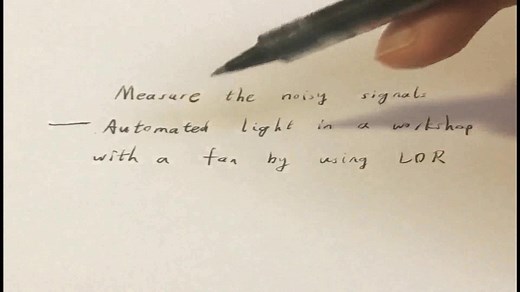 Measure the noisy signals
— Automated light in a workshop
with a fan by using LDR